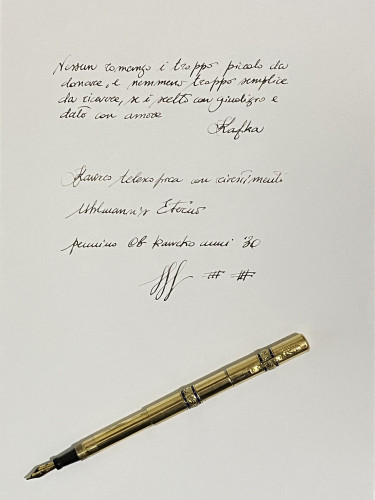 Nessun romanzo i troppo piccolo da
donare, e nemmeno troppo semplice
da ricevere, se i scelto con giudizio e
dato con amore
Kafka
Kaweco telescopica con rivestimento
Uhlmann's Eterno
pennino OB Kaweko anni '30